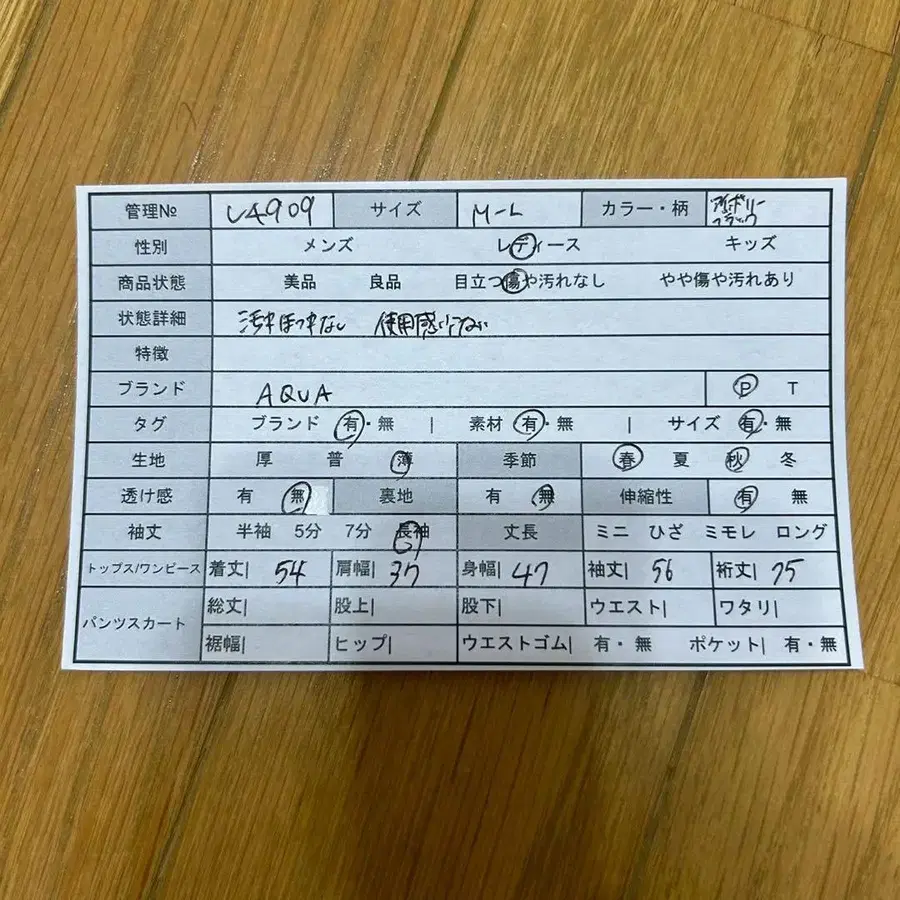 管理№ L4909 サイズ M-L カラー・柄 アイボリー ブラック
性別 メンズ レディース キッズ
商品状態 美品 良品 目立つ傷や汚れなし やや傷や汚れあり
状態詳細 汚れほつれなし 使用感
特徴
ブランド AQUA P T
タグ ブランド 有・無 | 素材 有・無 | サイズ 有・無
生地 厚 普 薄 季節 春 夏 秋 冬
透け感 有 無 裏地 有 無 伸縮性 有 無
袖丈 半袖 5分 7分 長袖 丈長 ミニ ひざ ミモレ ロング
トップス/ワンピース 着丈| 54 肩幅| 37 身幅| 47 袖丈| 56 裄丈| 75
パンツスカート 総丈| 股上| 股下| ウエスト| ワタリ|
裾幅| ヒップ| ウエストゴム| 有・無 ポケット| 有・無